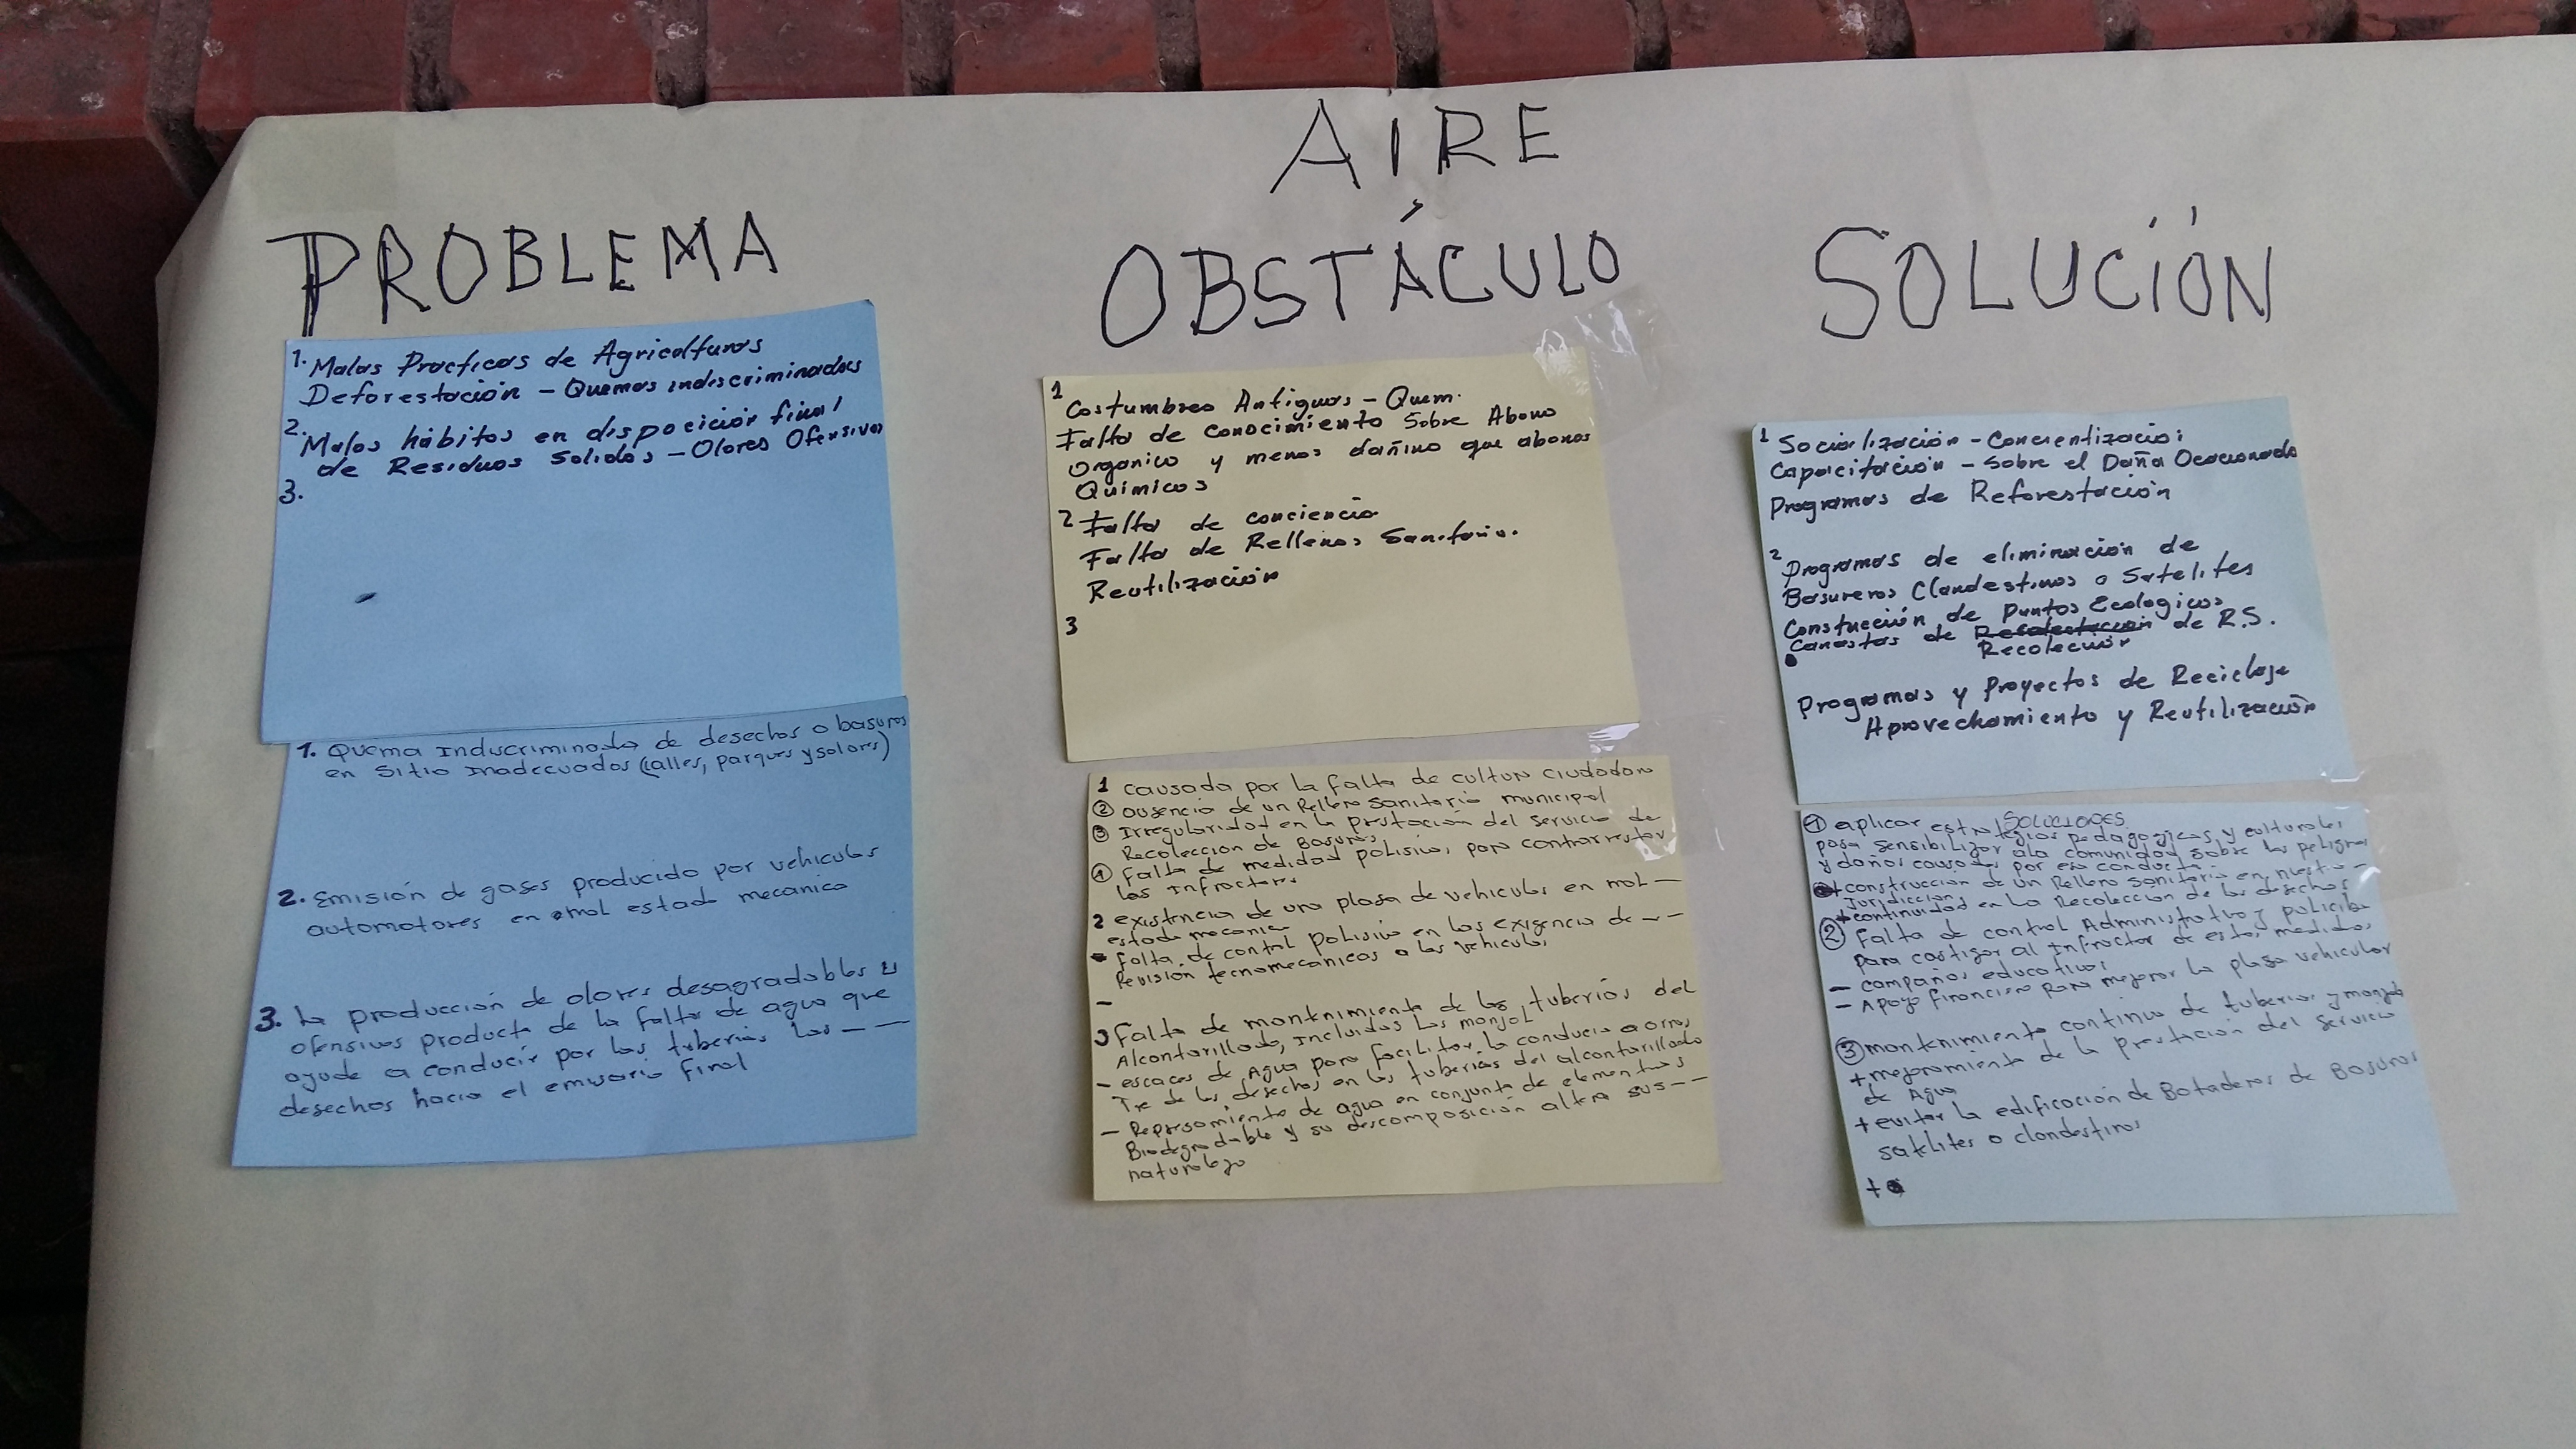 AIRE
PROBLEMA
1. Malas Practicas de Agricolturas
Deforestación - Quemas indiscriminadas
2. Malos hábitos en disposicion final
de Residuos Solidos - Olores Ofensivos
3.
1. Quema Indiscriminada de desechos o basuras
en Sitio Inadecuados (calles, parques y solares)
2. Emisión de gases producido por vehiculos
automotores en mal estado mecanico
3. La producción de olores desagradables u
ofensivos producto de la falta de agua que
ayude a conducir por las tuberias los — —
desechos hacia el emisario final
OBSTÁCULO
1
Costumbres Antiguas - Quem.
Falta de conocimiento Sobre Abono
Organico y menos dañino que abonos
Químicos
2 Falta de conciencia
Falta de Rellenos Sanitario.
Reutilización
3
1 causada por la falta de cultura ciudadan
② ausencia de un Relleno Sanitario municipal
③ Irregularidad en la prestación del servicio de
Recoleccion de Basuras
④ falta de medidad polisiva, para contrarrestar
los Infractores
2 existencia de una plasa de vehiculos en mal —
estado mecanico
falta de control polisivo en las exigencia de — —
Revisión tecnomecánicas a los vehiculos
—
3 Falta de mantenimiento de las tuberias del
Alcantarillado, Incluidas las manjol
- escaces de Agua para facilitar la conducia o
de los desechos en las tuberias del alcantarillado
- Represamiento de agua en conjunto de elementos
Biodegradable y su descomposición altera sus — —
naturaleza
SOLUCIÓN
1 Socialización - Concientizació:
Capacitación - Sobre el Daña Ocacionado
Programas de Reforestación
2 Programas de eliminación de
Basureros Clandestinos o Satelites
Constucción de puntos Ecologicos
Canastas de de R.S.
Recolección
Programas y Proyectos de Reciclaje
Aprovechamiento y Reutilización
SOLUCIONES
① aplicar estrategias pedagogicas y culturales
para sensibilizar a la comunidad sobre los peligros
y daños causados por esa conducta
+ construccion de un Relleno sanitario en nuest —
Juridiccion
+ continuidad en la Recoleccion de los desechos
② falta de control Administrativo y policiba
para castigar al Infractor de estas medidas
— compañas educativas
— Apoyo financiero para mejorar la plasa vehicular
③ mantenimiento continuo de tuberias y manjol
+ mejoramiento de la prestación del servicio
de Agua
+ evitar la edificación de Botaderos de Basuras
satelites o clandestinos
+